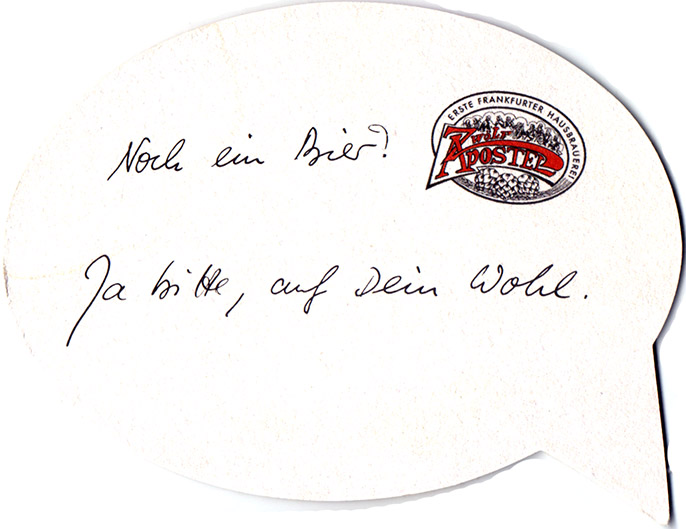 ERSTE FRANKFURTER HAUSBRAUEREI
Zwölf
APOSTEL
Noch ein Bier?
Ja bitte, auf Dein Wohl.